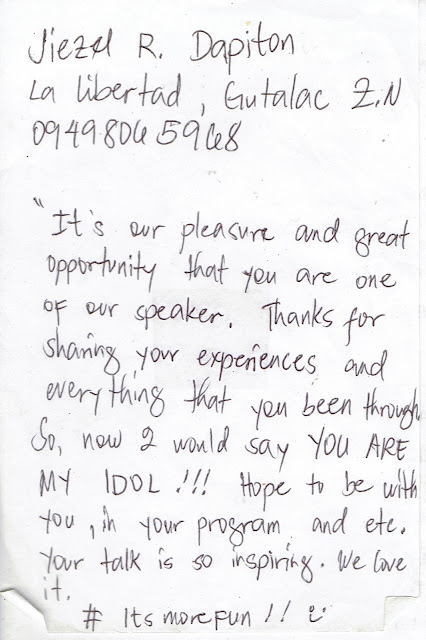 Jiezel R. Dapiton
La libertad, Gutalac Z.N
09498065968
"It's our pleasure and great
opportunity that you are one
of our speaker. Thanks for
sharing your experiences and
everything that you been through.
So, now I would say YOU ARE
MY IDOL !!! Hope to be with
you, in your program and etc.
Your talk is so inspiring. We love
it.
# Its more fun !! :)